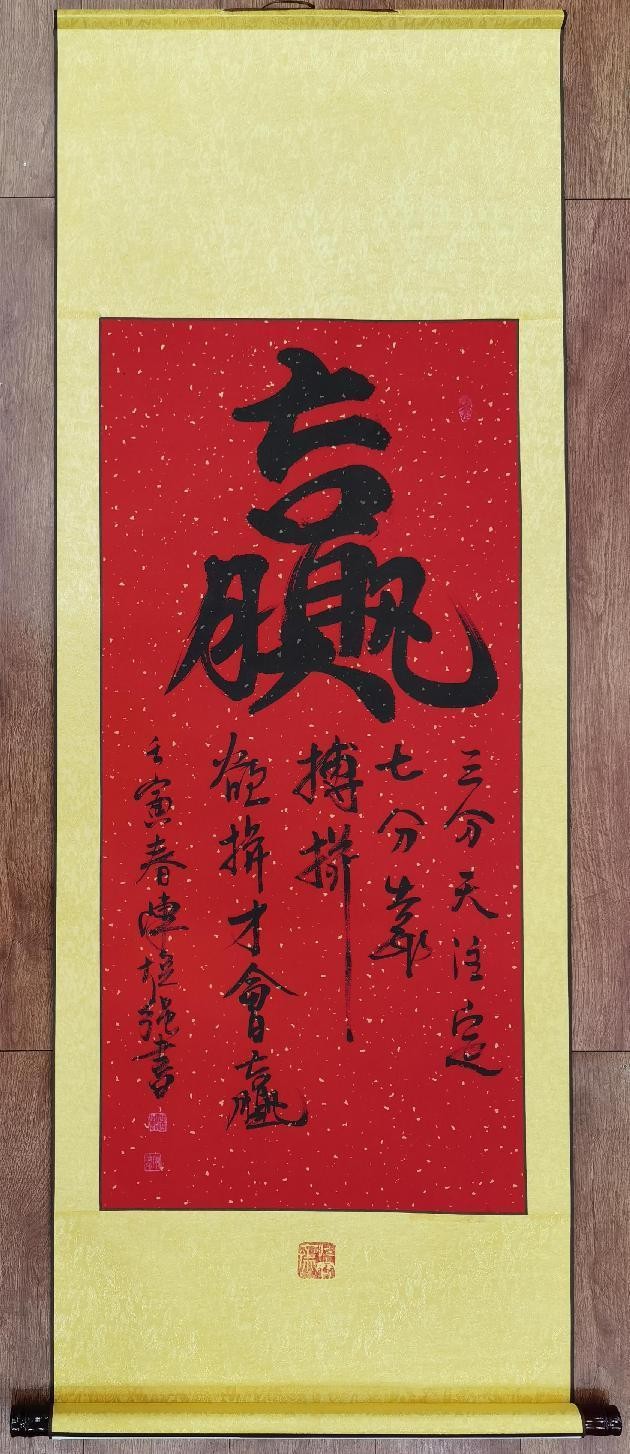 贏
三分天注定
七分靠
搏拼
拼才會贏
壬寅春陳強書